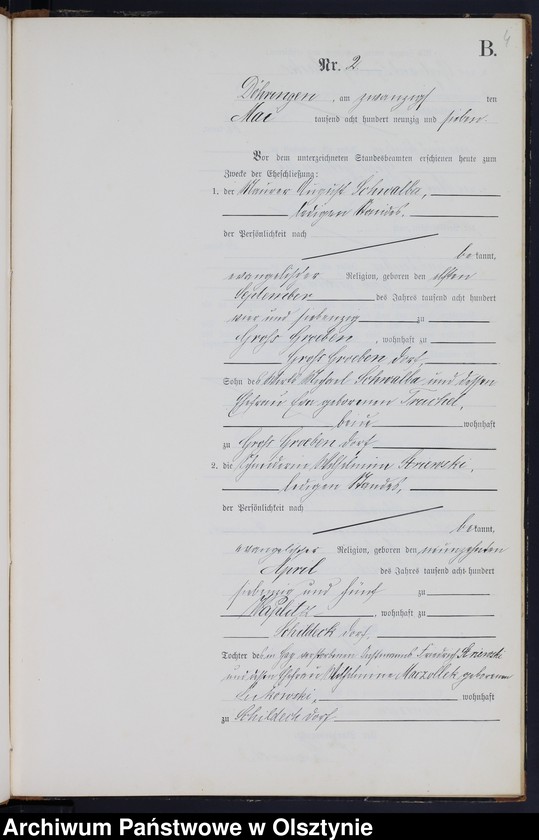 B.
4
Nr. 2
Döhringen, am zwanzigsten
Mai tausend acht hundert neunzig und sieben
Vor dem unterzeichneten Standesbeamten erschienen heute zum
Zwecke der Eheschließung:
1. der Maurer August Schwalba,
ledigen Standes,
der Persönlichkeit nach
bekannt,
evangelischer Religion, geboren den elften
September des Jahres tausend acht hundert
vier und siebenzig zu
Groß Groeben, wohnhaft zu
Groß Groeben Dorf,
Sohn des Michael Schwalba und dessen
Ehefrau geborenen
beide wohnhaft
zu Groß Groeben Dorf
2. die Wilhelmine
ledigen Standes,
der Persönlichkeit nach
bekannt,
evangelischer Religion, geboren den neunzehnten
April des Jahres tausend acht hundert
siebenzig und fünf zu
, wohnhaft zu
Schildeck Dorf,
Tochter des verstorbenen Friedrich
und dessen Ehefrau Wilhelmine geborenen
wohnhaft
zu Schildeck Dorf
Archiwum Państwowe w Olsztynie